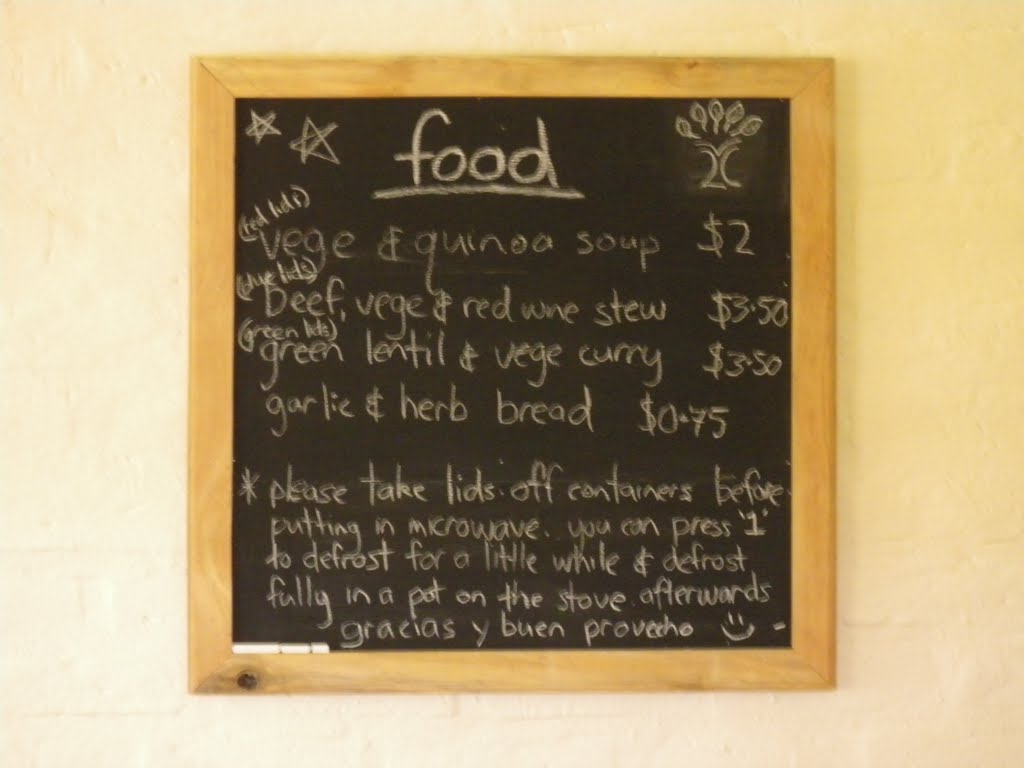 food
(red lids)
vege & quinoa soup $2
(blue lids)
beef, vege & red wine stew $3.50
(green lids)
green lentil & vege curry $3.50
garlic & herb bread $0.75
* please take lids off containers before
putting in microwave. you can press '1'
to defrost for a little while & defrost
fully in a pot on the stove afterwards
gracias y buen provecho